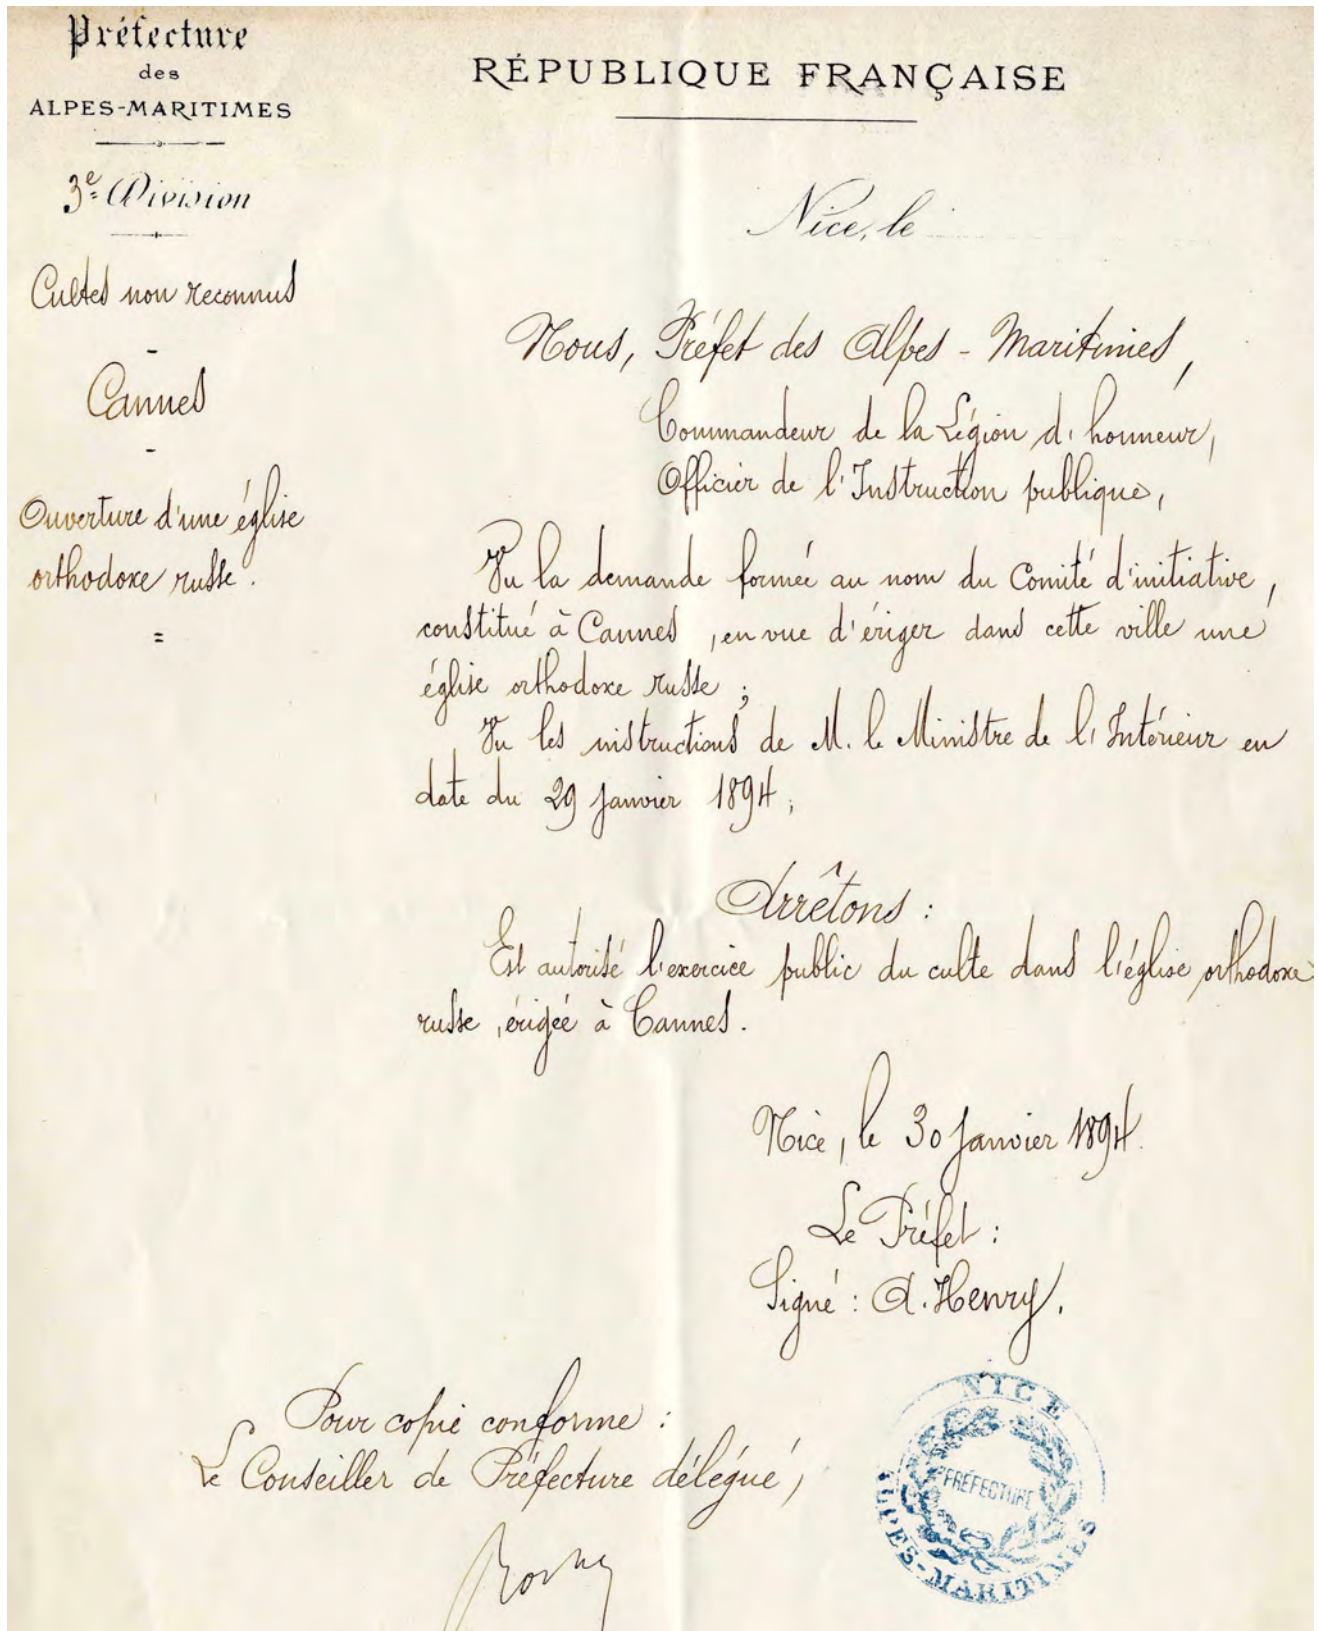 Préfecture
des
ALPES-MARITIMES
3e Division
Cultes non reconnus
-
Cannes
-
Ouverture d'une église
orthodoxe russe.
=
RÉPUBLIQUE FRANÇAISE
Nice, le
Nous, Préfet des Alpes-Maritimes,
Commandeur de la Légion d'honneur,
Officier de l'Instruction publique,
Vu la demande formée au nom du Comité d'initiative,
constitué à Cannes, en vue d'ériger dans cette ville une
église orthodoxe russe;
Vu les instructions de M. le Ministre de l'Intérieur en
date du 29 janvier 1894;
Arrêtons:
Est autorisé l'exercice public du culte dans l'église orthodoxe
russe, érigée à Cannes.
Nice, le 30 janvier 1894.
Le Préfet:
Signé: A. Henry.
Pour copie conforme:
Le Conseiller de Préfecture délégué,
NICE
PRÉFECTURE
ALPES-MARITIMES